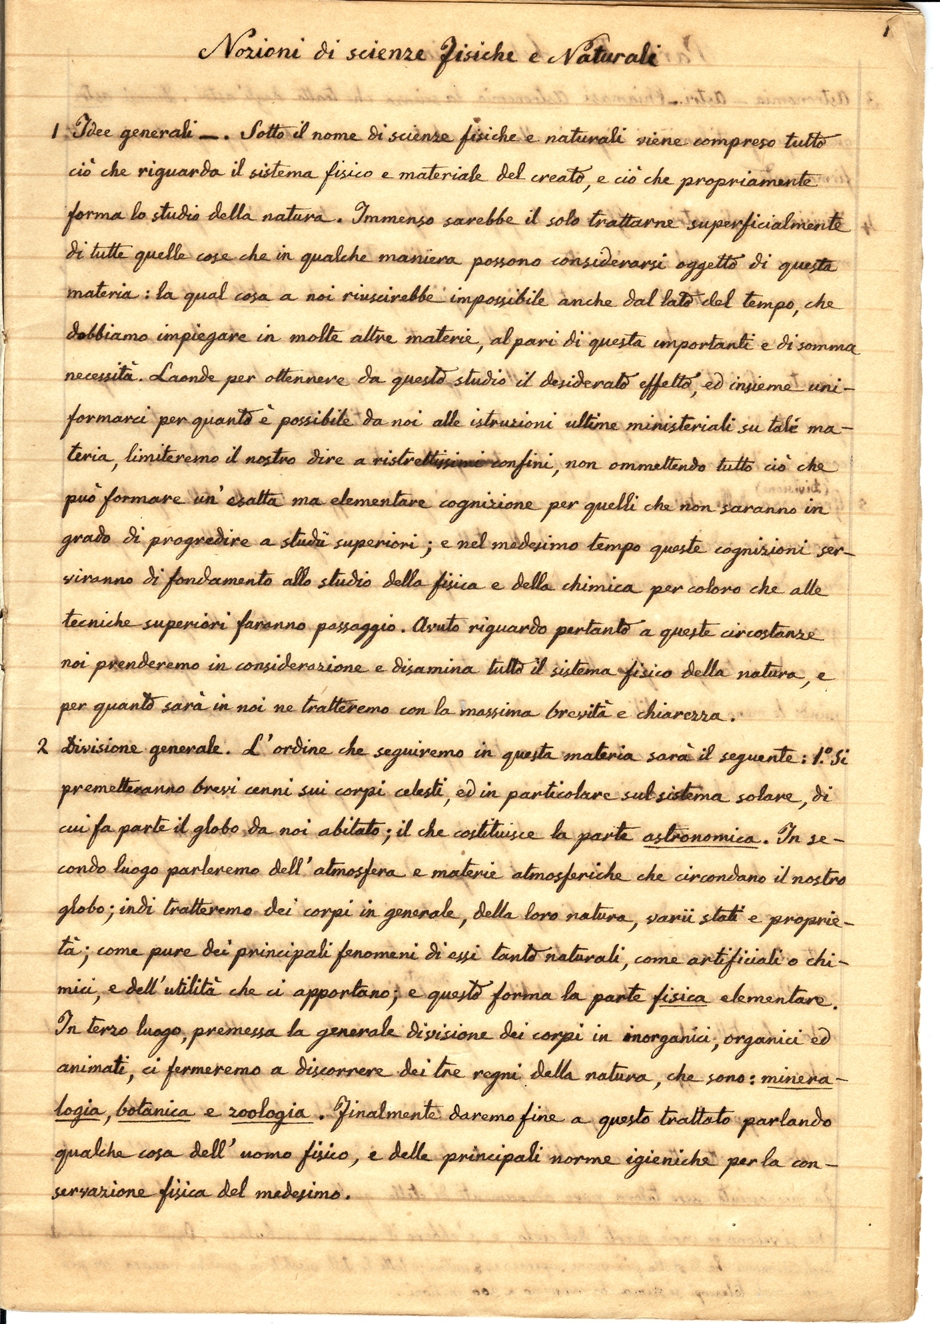 1
Nozioni di scienze Fisiche e Naturali
1 Idee generali —. Sotto il nome di scienze fisiche e naturali viene compreso tutto
ciò che riguarda il sistema fisico e materiale del creato, e ciò che propriamente
forma lo studio della natura. Immenso sarebbe il solo trattarne superficialmente
di tutte quelle cose che in qualche maniera possono considerarsi oggetto di questa
materia: la qual cosa a noi riuscirebbe impossibile anche dal lato del tempo, che
dobbiamo impiegare in molte altre materie, al pari di questa importanti e di somma
necessità. Laonde per ottennere da questo studio il desiderato effetto, ed insieme uni-
formarci per quanto è possibile da noi alle istruzioni ultime ministeriali su tale ma-
teria, limiteremo il nostro dire a ristrettissimi confini, non ommettendo tutto ciò che
può formare un' esatta ma elementare cognizione per quelli che non saranno in
grado di progredire a studii superiori; e nel medesimo tempo queste cognizioni ser-
viranno di fondamento allo studio della fisica e della chimica per coloro che alle
tecniche superiori faranno passaggio. Avuto riguardo pertanto a queste circostanze
noi prenderemo in considerazione e disamina tutto il sistema fisico della natura, e
per quanto sarà in noi ne tratteremo con la massima brevità e chiarezza.
2 Divisione generale. L'ordine che seguiremo in questa materia sarà il seguente: 1.º Si
premetteranno brevi cenni sui corpi celesti, ed in particolare sul sistema solare, di
cui fa parte il globo da noi abitato; il che costituisce la parte astronomica. In se-
condo luogo parleremo dell' atmosfera e materie atmosferiche che circondano il nostro
globo; indi tratteremo dei corpi in generale, della loro natura, varii stati e proprie-
tà; come pure dei principali fenomeni di essi tanto naturali, come artificiali o chi-
mici, e dell'utilità che ci apportano; e questo forma la parte fisica elementare.
In terzo luogo, premessa la generale divisione dei corpi in inorganici, organici ed
animati, ci fermeremo a discorrere dei tre regni della natura, che sono: minera-
logia, botanica e zoologia. Finalmente daremo fine a questo trattato parlando
qualche cosa dell' uomo fisico, e delle principali norme igieniche per la con-
servazione fisica del medesimo.